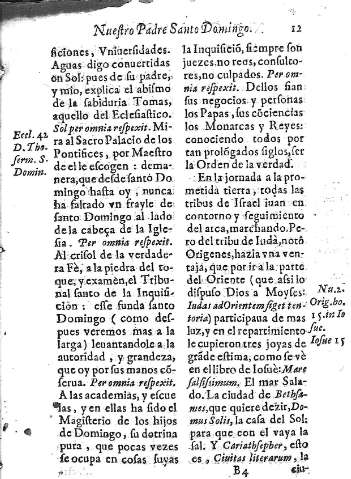 Nuestro Padre Santo Domingo. 12
ficiones, Vniuersidades.
Aguas digo conuertidas
en Sol: pues de su padre,
y mio, explica el abismo
de la sabiduria Tomas,
aquello del Eclesiastico.
Sol per omnia respexit. Mi-
ra al Sacro Palacio de los
Pontifices, por Maestro
de el le escogen: dema-
nera, que desde santo Do
mingo hasta oy, nunca
ha faltado vn frayle de
santo Domingo al lado
de la cabeça de la Igle-
sia. Per omnia respexit.
Al crisol de la verdade-
ra Fè, a la piedra del to-
que, y examen, el Tribu-
nal santo de la Inquisi-
cion: esse funda santo
Domingo (como des-
pues veremos mas a la
larga) leuantandole a la
autoridad, y grandeza,
que oy por sus manos cõ-
serua. Per omnia respexit.
A las academias, y escue
las, y en ellas ha sido el
Magisterio de los hijos
de Domingo, su dotrina
pura, que pocas vezes
se ocupa en cosas suyas
Eccl. 42
D. Tho.
serm. S.
Domin.
la Inquisiciõ, siempre son
juezes, no reos, consulto-
res, no culpados. Per om-
nia respexit. Dellos fian
sus negocios y personas
los Papas, sus cõciencias
los Monarcas y Reyes:
conociendo todos por
tan prolõgados siglos, ser
la Orden de la verdad.
En la jornada a la pro-
metida tierra, todas las
tribus de Israel iuan en
contorno y seguimiento
del arca, marchando. Pe-
ro del tribu de Iuda, notò
Origenes, hazia vna ven-
taja, que por ir a la parte
del Oriente (que assi lo
dispuso Dios a Moyses:
Iudas ad Orientem figet ten-
toria) participaua de mas
luz, y en el repartimiento
le cupieron tres joyas de
grãde estima, como se vè
en el libro de Iosuè: Mare
salsissimum. El mar Sala-
do. La ciudad de Bethsa-
mes, que quiere dezir, Do-
mus Solis, la casa del Sol:
para que con el vaya la
sal. Y Cariathsepher, esto
es, Ciuitas literarum, la
Nu. 2.
Orig. ho.
15. in Io
sue.
Iosue 15
B4 ciu-